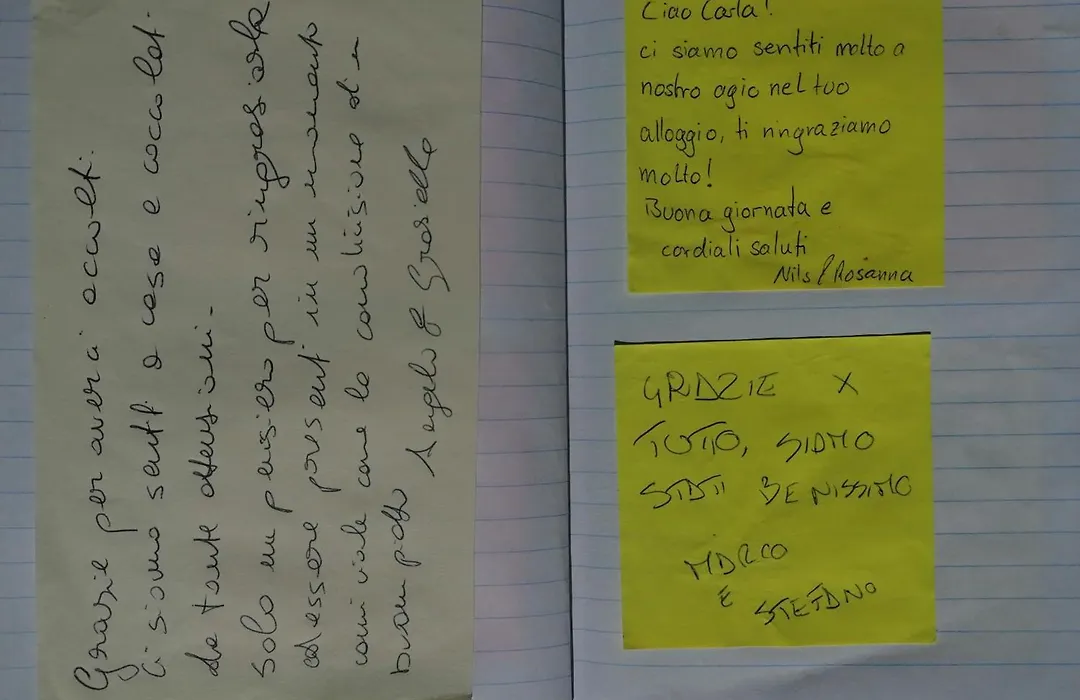 Grazie per averci accolti.
Ci siamo sentiti a casa e coccolati
da tante attenzioni.
Solo un pensiero per ringraziarla
ed essere presenti in un momento
conviviale come la condivisione di un
buon piatto
Angelo & Graziella
Ciao Carla!
ci siamo sentiti molto a
nostro agio nel tuo
alloggio, ti ringraziamo
molto!
Buona giornata e
cordiali saluti
Nils / Rosanna
GRAZIE X
TUTTO, SIAMO
STATI BENISSIMO
MARCO
E STEFANO